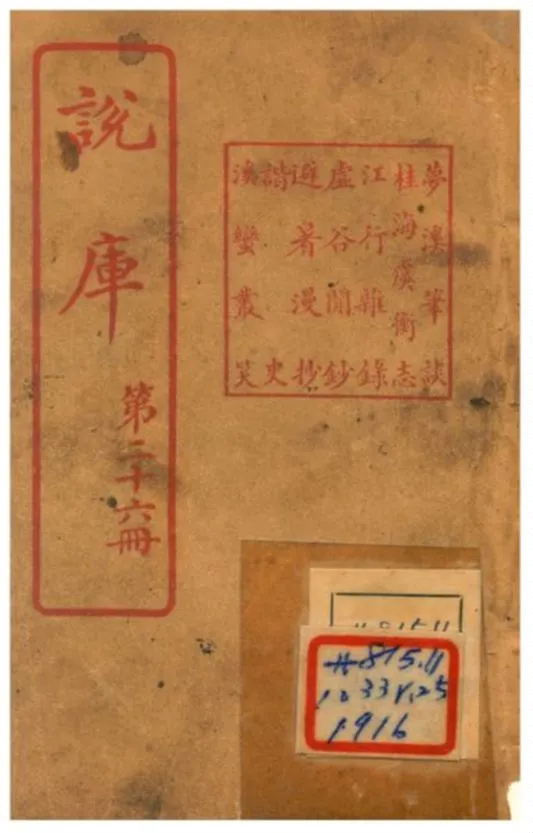 夢溪筆談
桂海虞衡志
江行雜錄
虛谷閒鈔
避暑漫抄
諧史
溪蠻叢笑
說庫
第二十六冊
#815.11
#815.11
1916